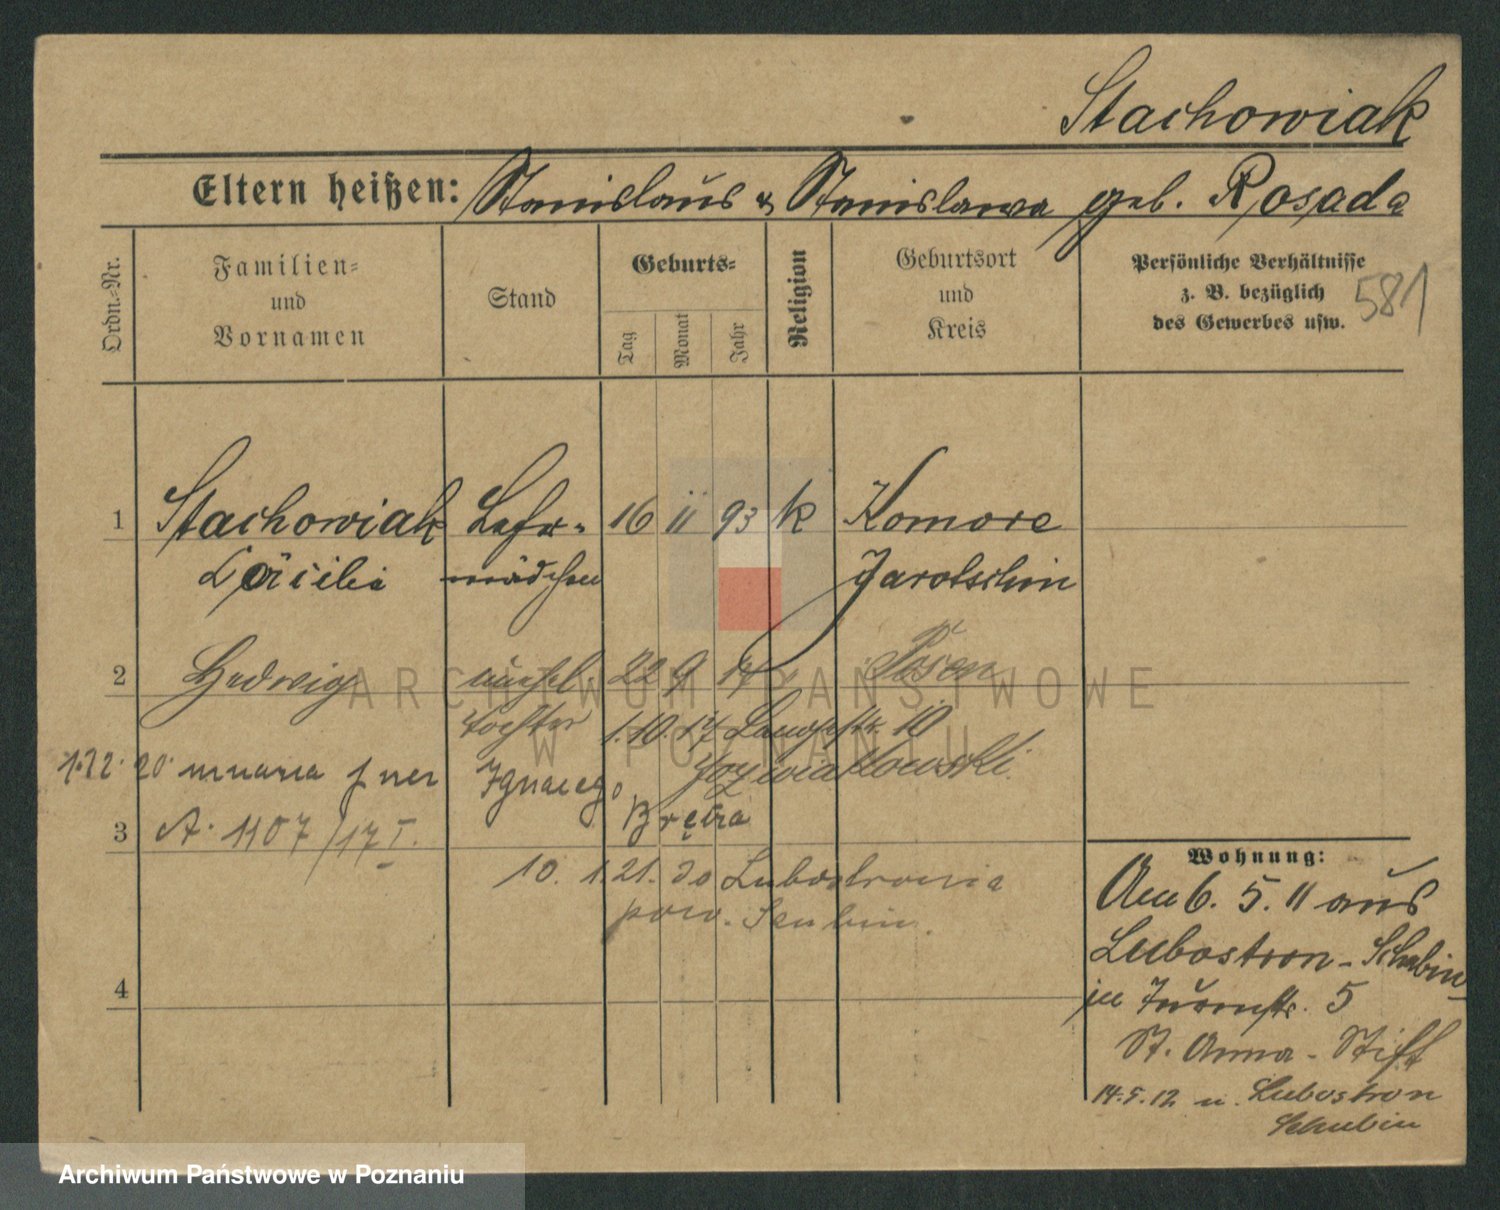 Stachowiak
Eltern heißen: Stanislaus & Stanislawa geb. Rosada
Ordn.-Nr.
Familien-
und
Vornamen
Stand
Geburts-
Tag
Monat
Jahr
Religion
Geburtsort
und
Kreis
Persönliche Verhältnisse
z. B. bezüglich
des Gewerbes usw.
581
1 Stachowiak Lehr- 16 11 93 k Komore
Cäcilie mädchen Jarotschin
2 Hedwig unehel. 22 9 17 Posen
tochter 1.10.17 Langestr. 10
1.12.20 umarła Ignacego
Bręka
3 A. 1107/17 I.
10. 1. 21. do Lubostronia
pow. Szubin.
4
Wohnung:
Am 6. 5. 11 aus
Lubostron - Schubin
in Turmstr. 5
St. Anna - Stift
14.5.12 n. Lubostron
Schubin
ARCHIWUM PAŃSTWOWE
W POZNANIU
Archiwum Państwowe w Poznaniu